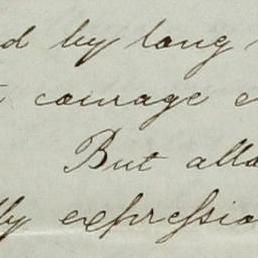 d by long
courage
But allo
lly expressio